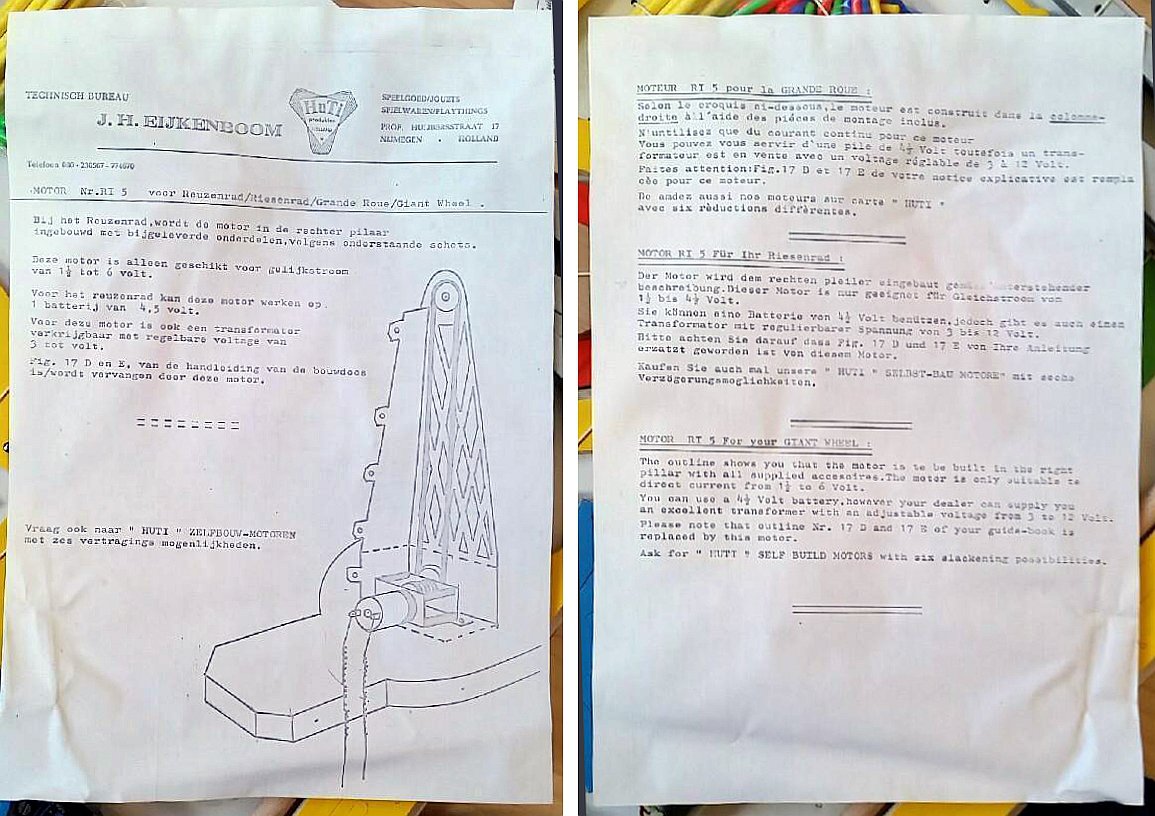 TECHNISCH BUREAU
J. H. EIJKENBOOM
HuTi
produkten
SPEELGOED/JOUETS
SPIELWAREN/PLAYTHINGS
PROF. HUIJBERSSTRAAT 17
NIJMEGEN - HOLLAND
Telefoon 080 - 230567 - 774670
MOTOR Nr.RI 5 voor Reuzenrad/Riesenrad/Grande Roue/Giant Wheel .
Bij het Reuzenrad,wordt de motor in de rechter pilaar
ingebouwd met bijgeleverde onderdelen,volgens onderstaande schets.
Deze motor is alleen geschikt voor gelijkstroom
van 1½ tot 6 volt.
Voor het reuzenrad kan deze motor werken op
1 batterij van 4,5 volt.
Voor deze motor is ook een transformator
verkrijgbaar met regelbare voltage van
3 tot volt.
Fig. 17 D en E, van de handleiding van de bouwdoos
is/wordt vervangen door deze motor.
= = = = = = = =
Vraag ook naar " HUTI " ZELFBOUW-MOTOREN
met zes vertragings mogenlijkheden.
MOTEUR RI 5 pour la GRANDE ROUE :
Selon le croquis ci-dessous,le moteur est construit dans la colonne-
droite à l'aide des piéces de montage inclus.
N'untilisez que du courant continu pour ce moteur
Vous pouvez vous servir d'une pile de 4½ Volt toutefois un trans-
formateur est en vente avec un voltage réglable de 3 à 12 Volt.
Faites attention:Fig.17 D et 17 E de votre notice explicative est rempla
cée pour ce moteur.
De amdez aussi nos moteurs sur carte " HUTI "
avec six réductions différentes.
MOTOR RI 5 Für Ihr Riesenrad :
Der Motor wird dem rechten pleiler eingebaut gemäss unterstehender
beschreibung.Dieser Motor is nur geeignet für Gleichstroom von
1½ bis 4½ Volt.
Sie können eine Batterie von 4½ Volt benützen,jedoch gibt es auch einen
Transformator mit regulierbarer Spannung von 3 bis 12 Volt.
Bitte achten Sie darauf dass Fig. 17 D und 17 E von Ihre Anleitung
ersatzt geworden ist von diesem Motor.
Kaufen Sie auch mal unsere " HUTI " SELBST-BAU MOTORE" mit sechs
Verzögerungsmoglichkeiten.
MOTOR RI 5 For your GIANT WHEEL :
The outline shows you that the motor is to be built in the right
pillar with all supplied accesoires.The motor is only suitable to
direct current from 1½ to 6 Volt.
You can use a 4½ Volt battery,however your dealer can supply you
an excellent transformer with an adjustable voltage from 3 to 12 Volt.
Please note that outline Nr. 17 D and 17 E of your guide-book is
replaced by this motor.
Ask for " HUTI " SELF BUILD MOTORS with six slackening possibilities.